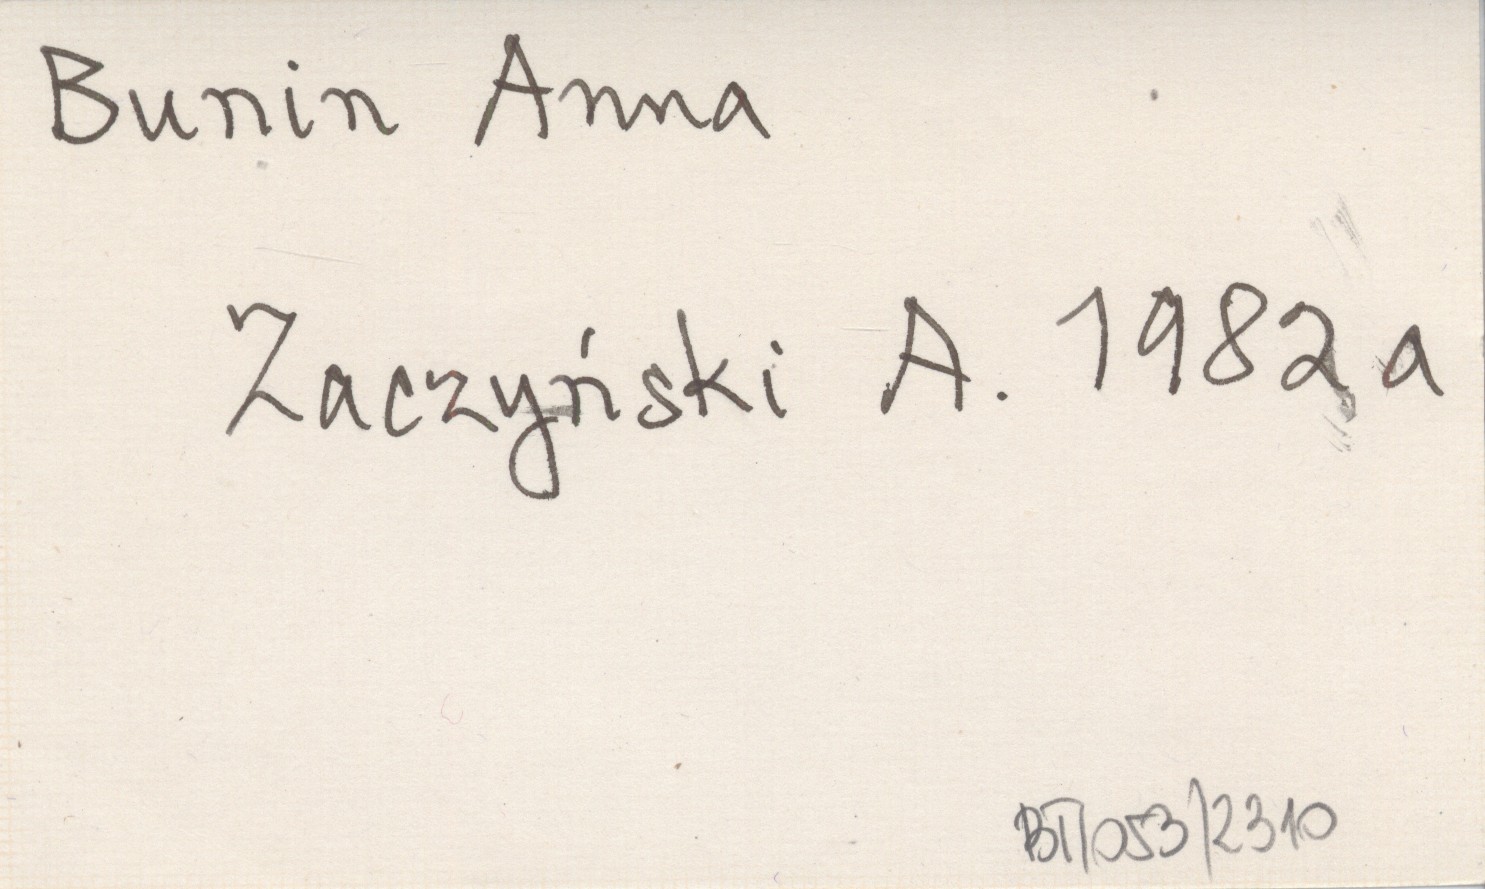 Bunin Anna
Zaczyński A. 1982a
BT/053/2310